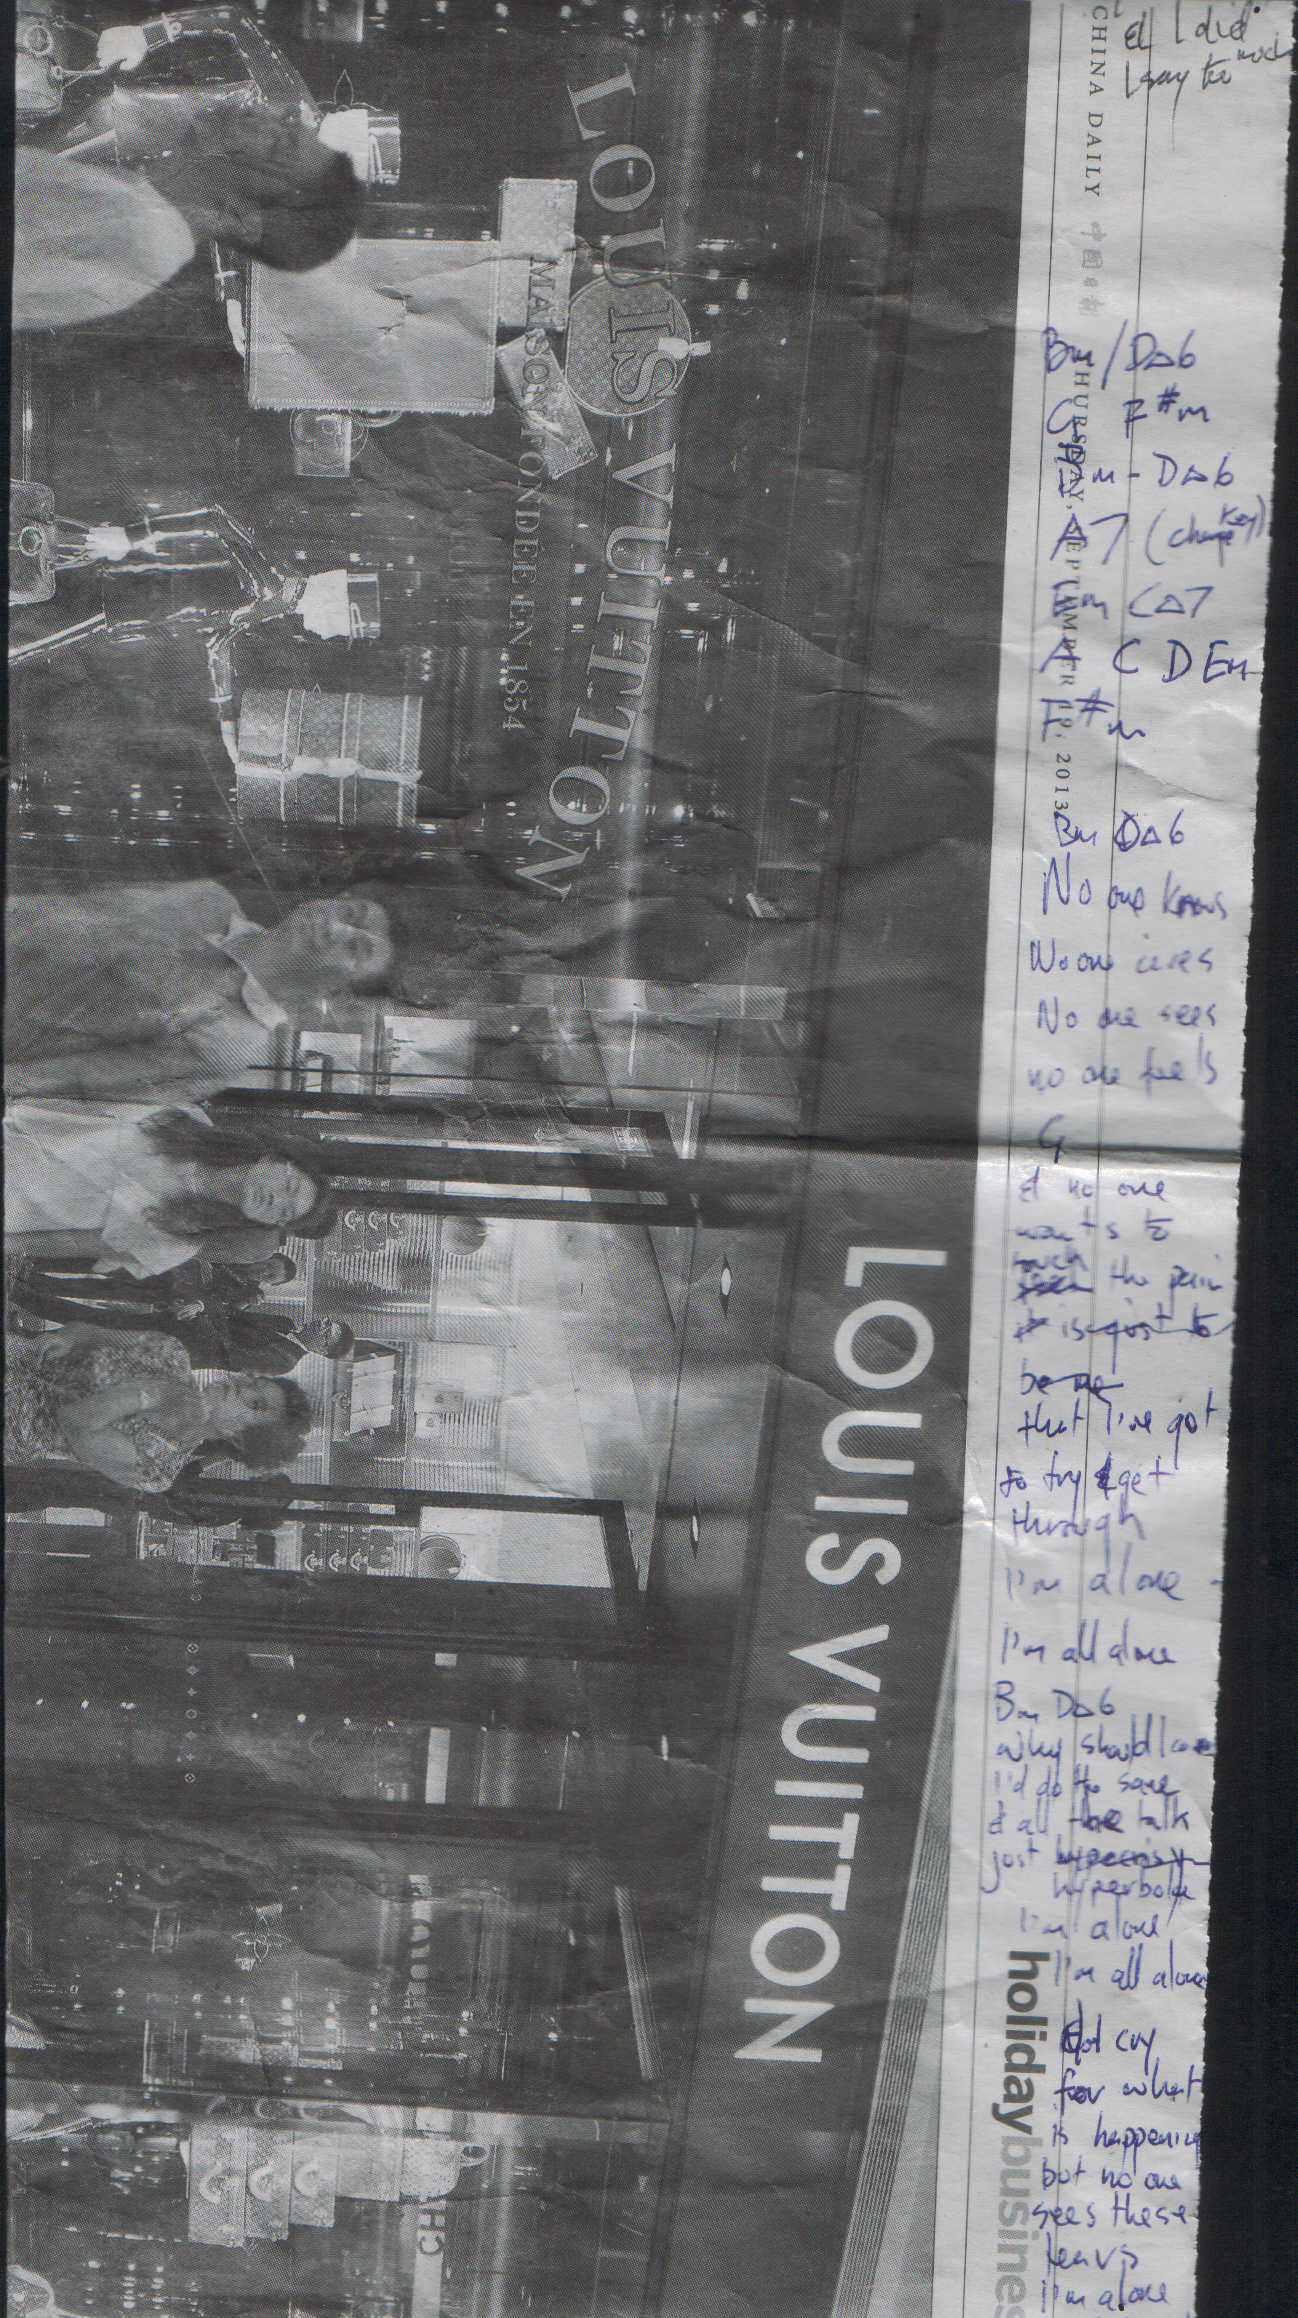 & I did
I say too much
CHINA DAILY 中國日報
THURSDAY, SEPTEMBER 19, 2013
LOUIS VUITTON
MAISON FONDÉE EN 1854
LOUIS VUITTON
holidaybusines
Bm/D△6
G F#m
Bm - D△6
A7 (change key)
Em C△7
A C D Em
F#m
Bm D△6
No one knows
No one cares
No one sees
no one feels
G
& no one
wants to
touch the pain
it is just to
be me
that I've got
to try & get
through
I'm alone -
I'm all alone
Bm D△6
why should I care
I'd do the same
& all the talk
just hypocrisy
hyperbole
I'm alone
I'm all alone
& I cry
for what
is happening
but no one
sees these
tears
I'm alone